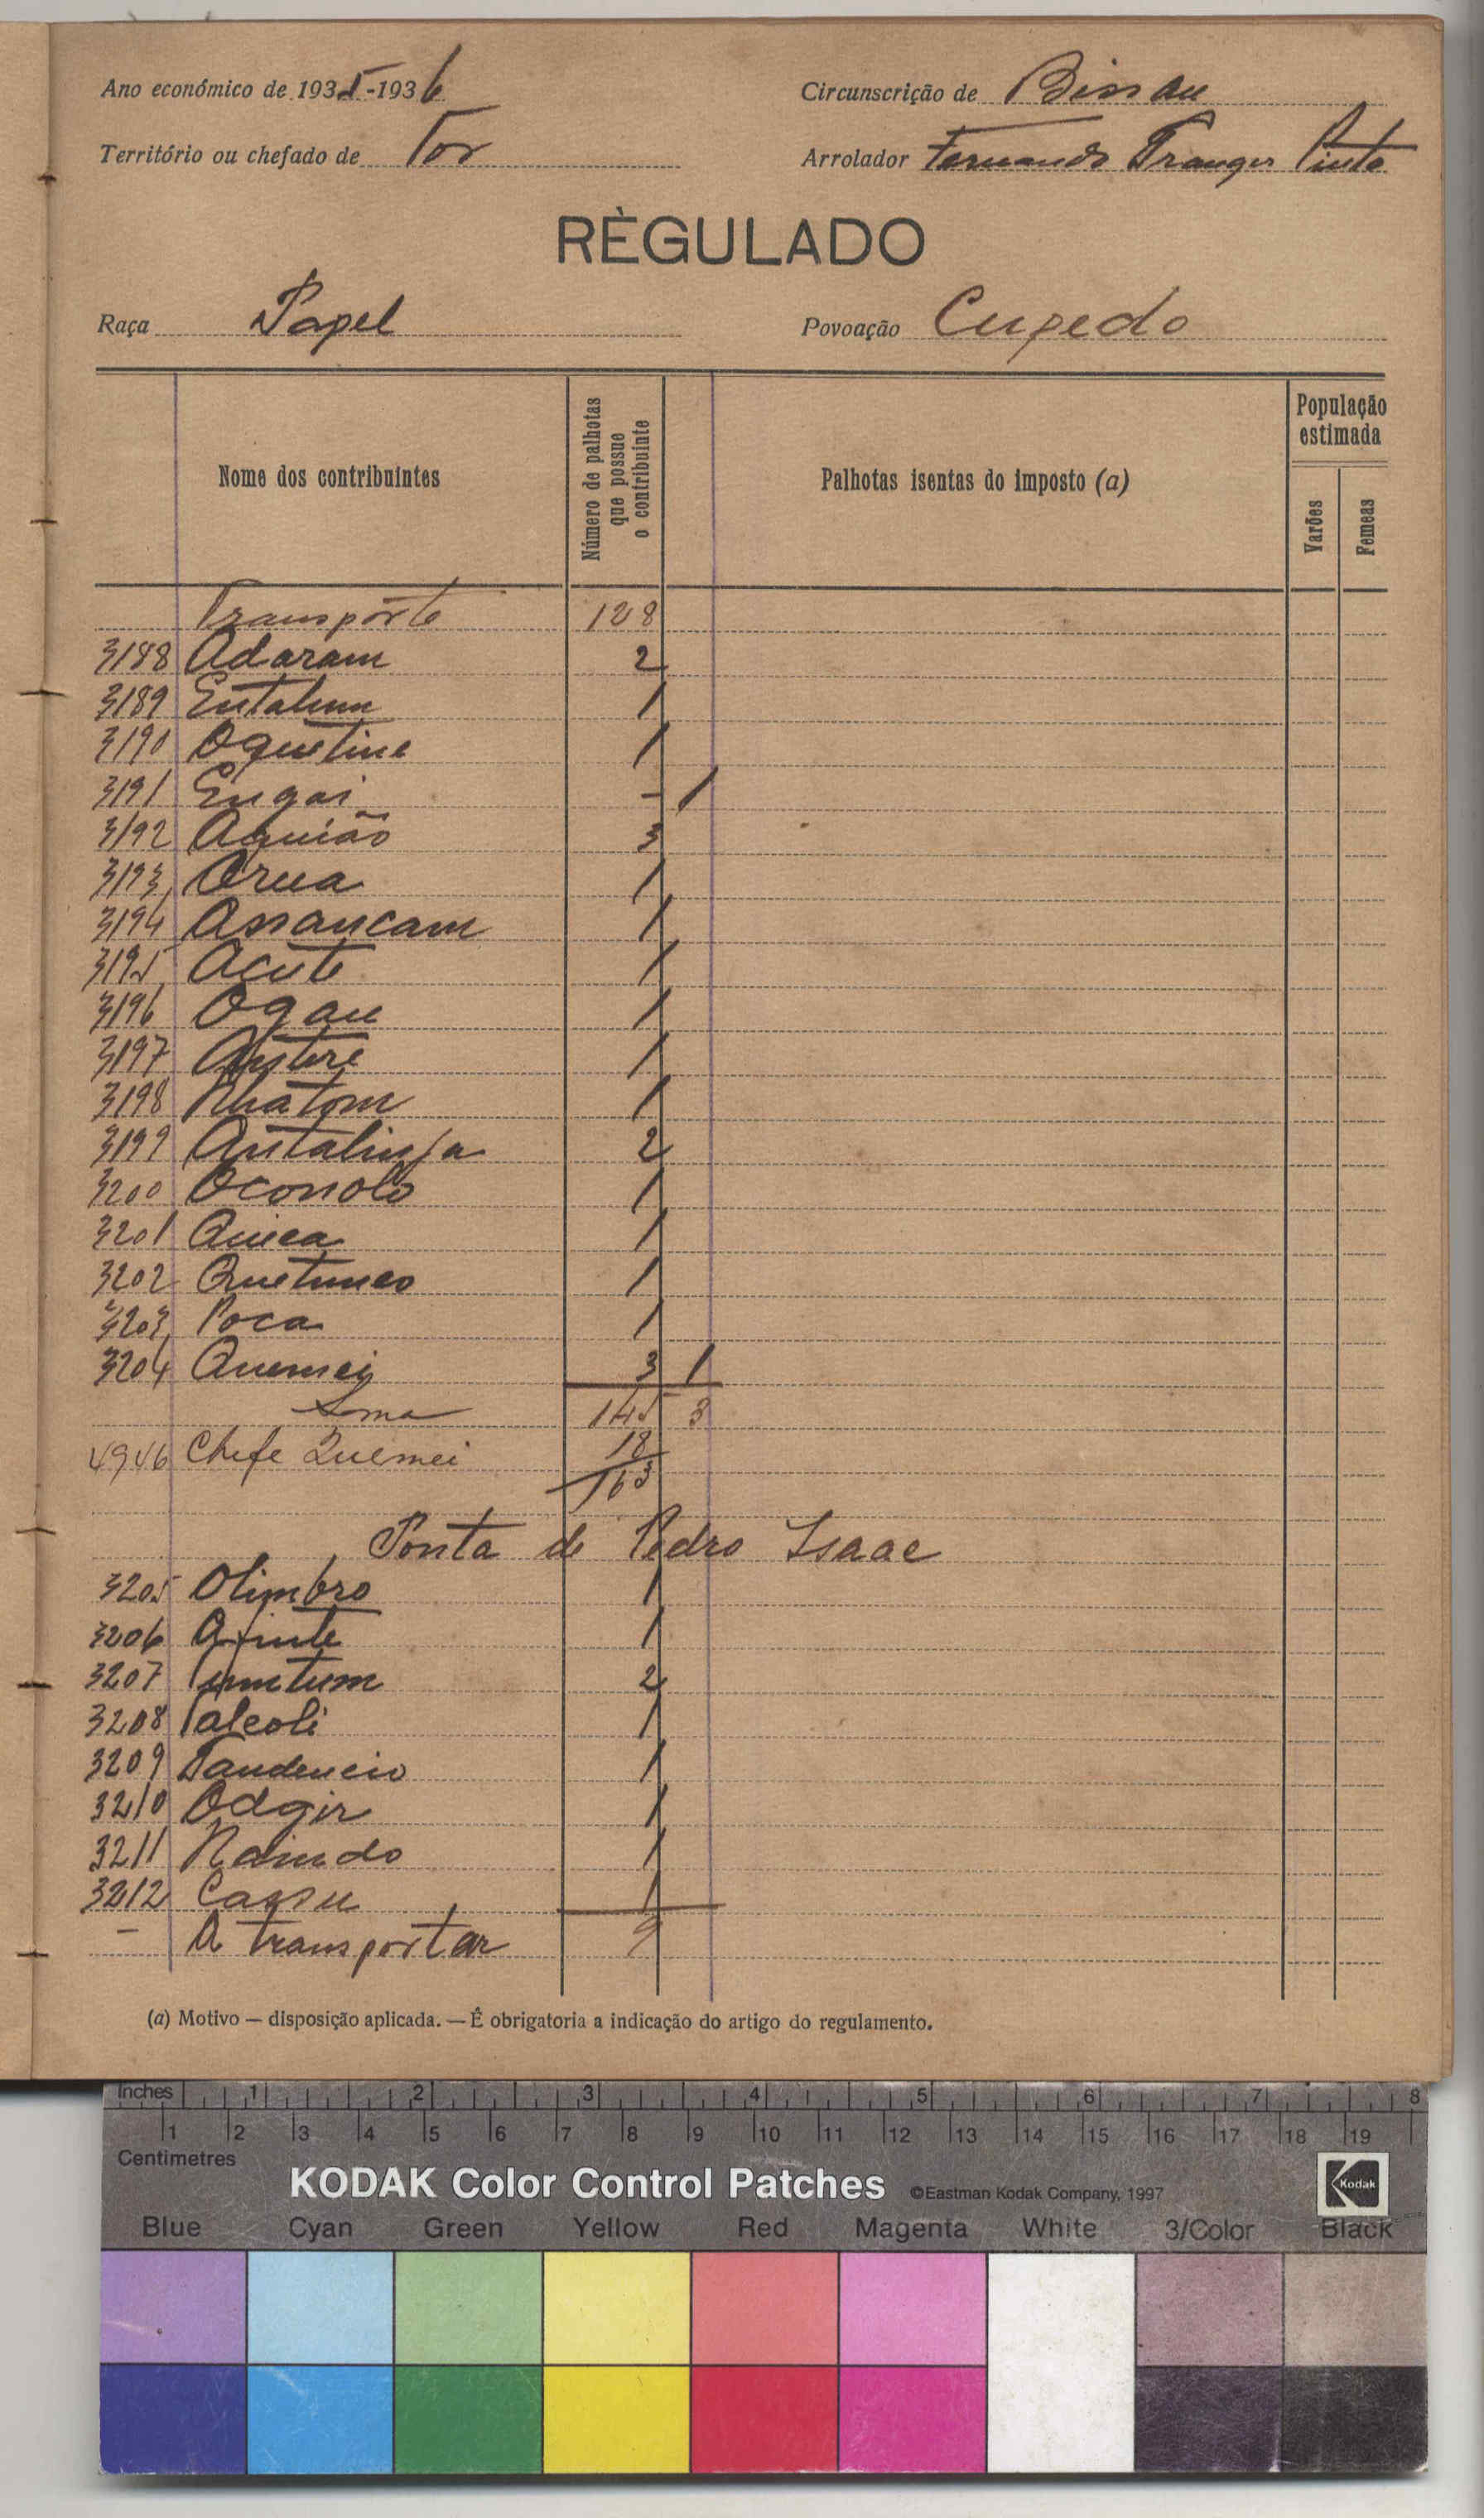 Ano económico de 1935-1936 Circunscrição de Bissau
Território ou chefado de Tor Arrolador Fernando Pinto
RÈGULADO
Raça Papel Povoação Cupedo
Nome dos contribuintes
Número de palhotas que possue o contribuinte
Palhotas isentas do imposto (a)
População estimada
Varões
Femeas
Transpórte 128
3188 Adaram 2
3189 Entalum 1
3190 Oquetine 1
3191 Engai - 1
3192 Aquião 3
3193 Orua 1
3194 Assancam 1
3195 Acute 1
3196 Ogau 1
3197 1
3198 Nhatom 1
3199 Antalinja 2
3200 Oconolo 1
3201 Quica 1
3202 1
3203 Poca 1
3204 Quemei 3 1
Soma 145 3
4946 Chefe Quemei 18
163
Ponta de Pedro Isaac
3205 Olimbro 1
3206 1
3207 2
3208 1
3209 1
3210 Odgir 1
3211 Naindo 1
3212 1
- A transportar 9
(a) Motivo — disposição aplicada. — É obrigatoria a indicação do artigo do regulamento.
Inches 1 2 3 4 5 6 7 8
1 2 3 4 5 6 7 8 9 10 11 12 13 14 15 16 17 18 19
Centimetres
KODAK Color Control Patches ©Eastman Kodak Company, 1997 Kodak
Blue Cyan Green Yellow Red Magenta White 3/Color Black